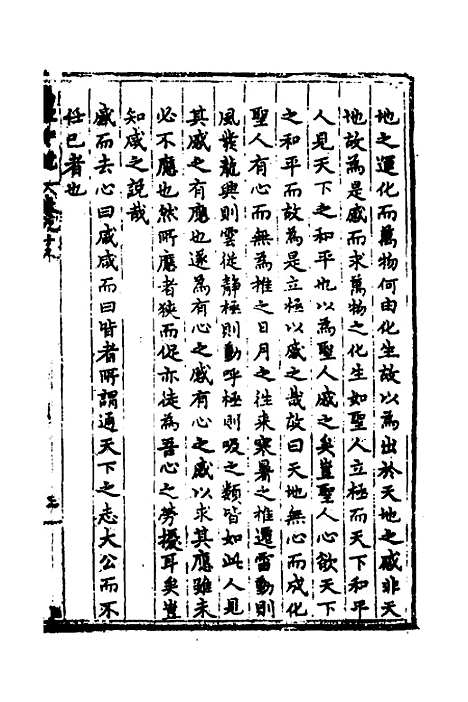 地之運化而萬物何由化生故以為出於天地之感非天
地故為是感而求萬物之化生如聖人立極而天下和平
人見天下之和平也以為聖人感之矣豈聖人心欲天下
之和平而故為是立極以感之哉故曰天地無心而成化
聖人有心而無為推之日月之往來寒暑之推遷雷動則
風發龍興則雲從靜極則動呼極則吸之類皆如此人見
其感之有應也遂為有心之感有心之感以求其應雖未
必不應也然所應者狹而促亦徒為吾心之勞擾耳矣豈
知咸之說哉
感而去心曰咸咸而曰皆者所謂通天下之志大公而不
任己者也